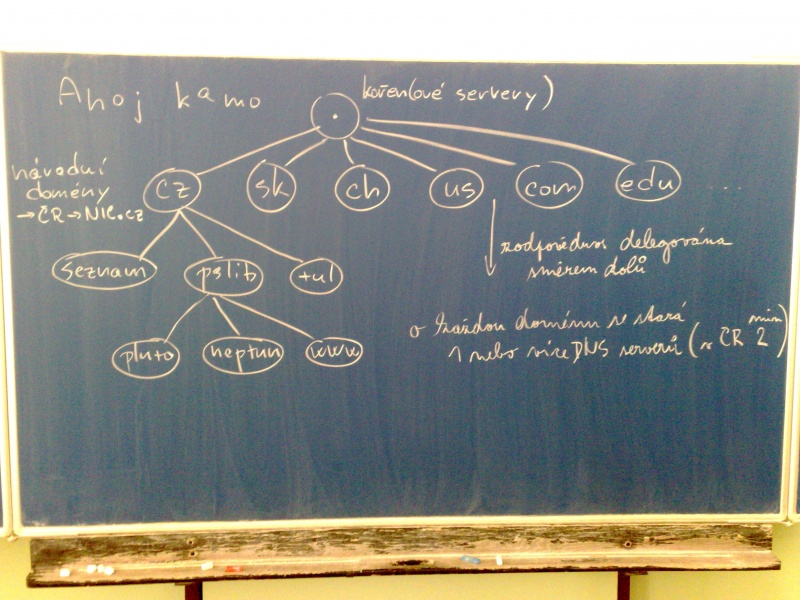 Ahoj kamo
kořen(ové servery)
.
národní
domény
→ČR→NIC.cz
cz sk ch us com edu ...
zodpovědnos delegována
směrem dolů
seznam pslib tul
o každou doménu se stará
1 nebo více DNS serverů (v ČR min 2)
pluto neptun www